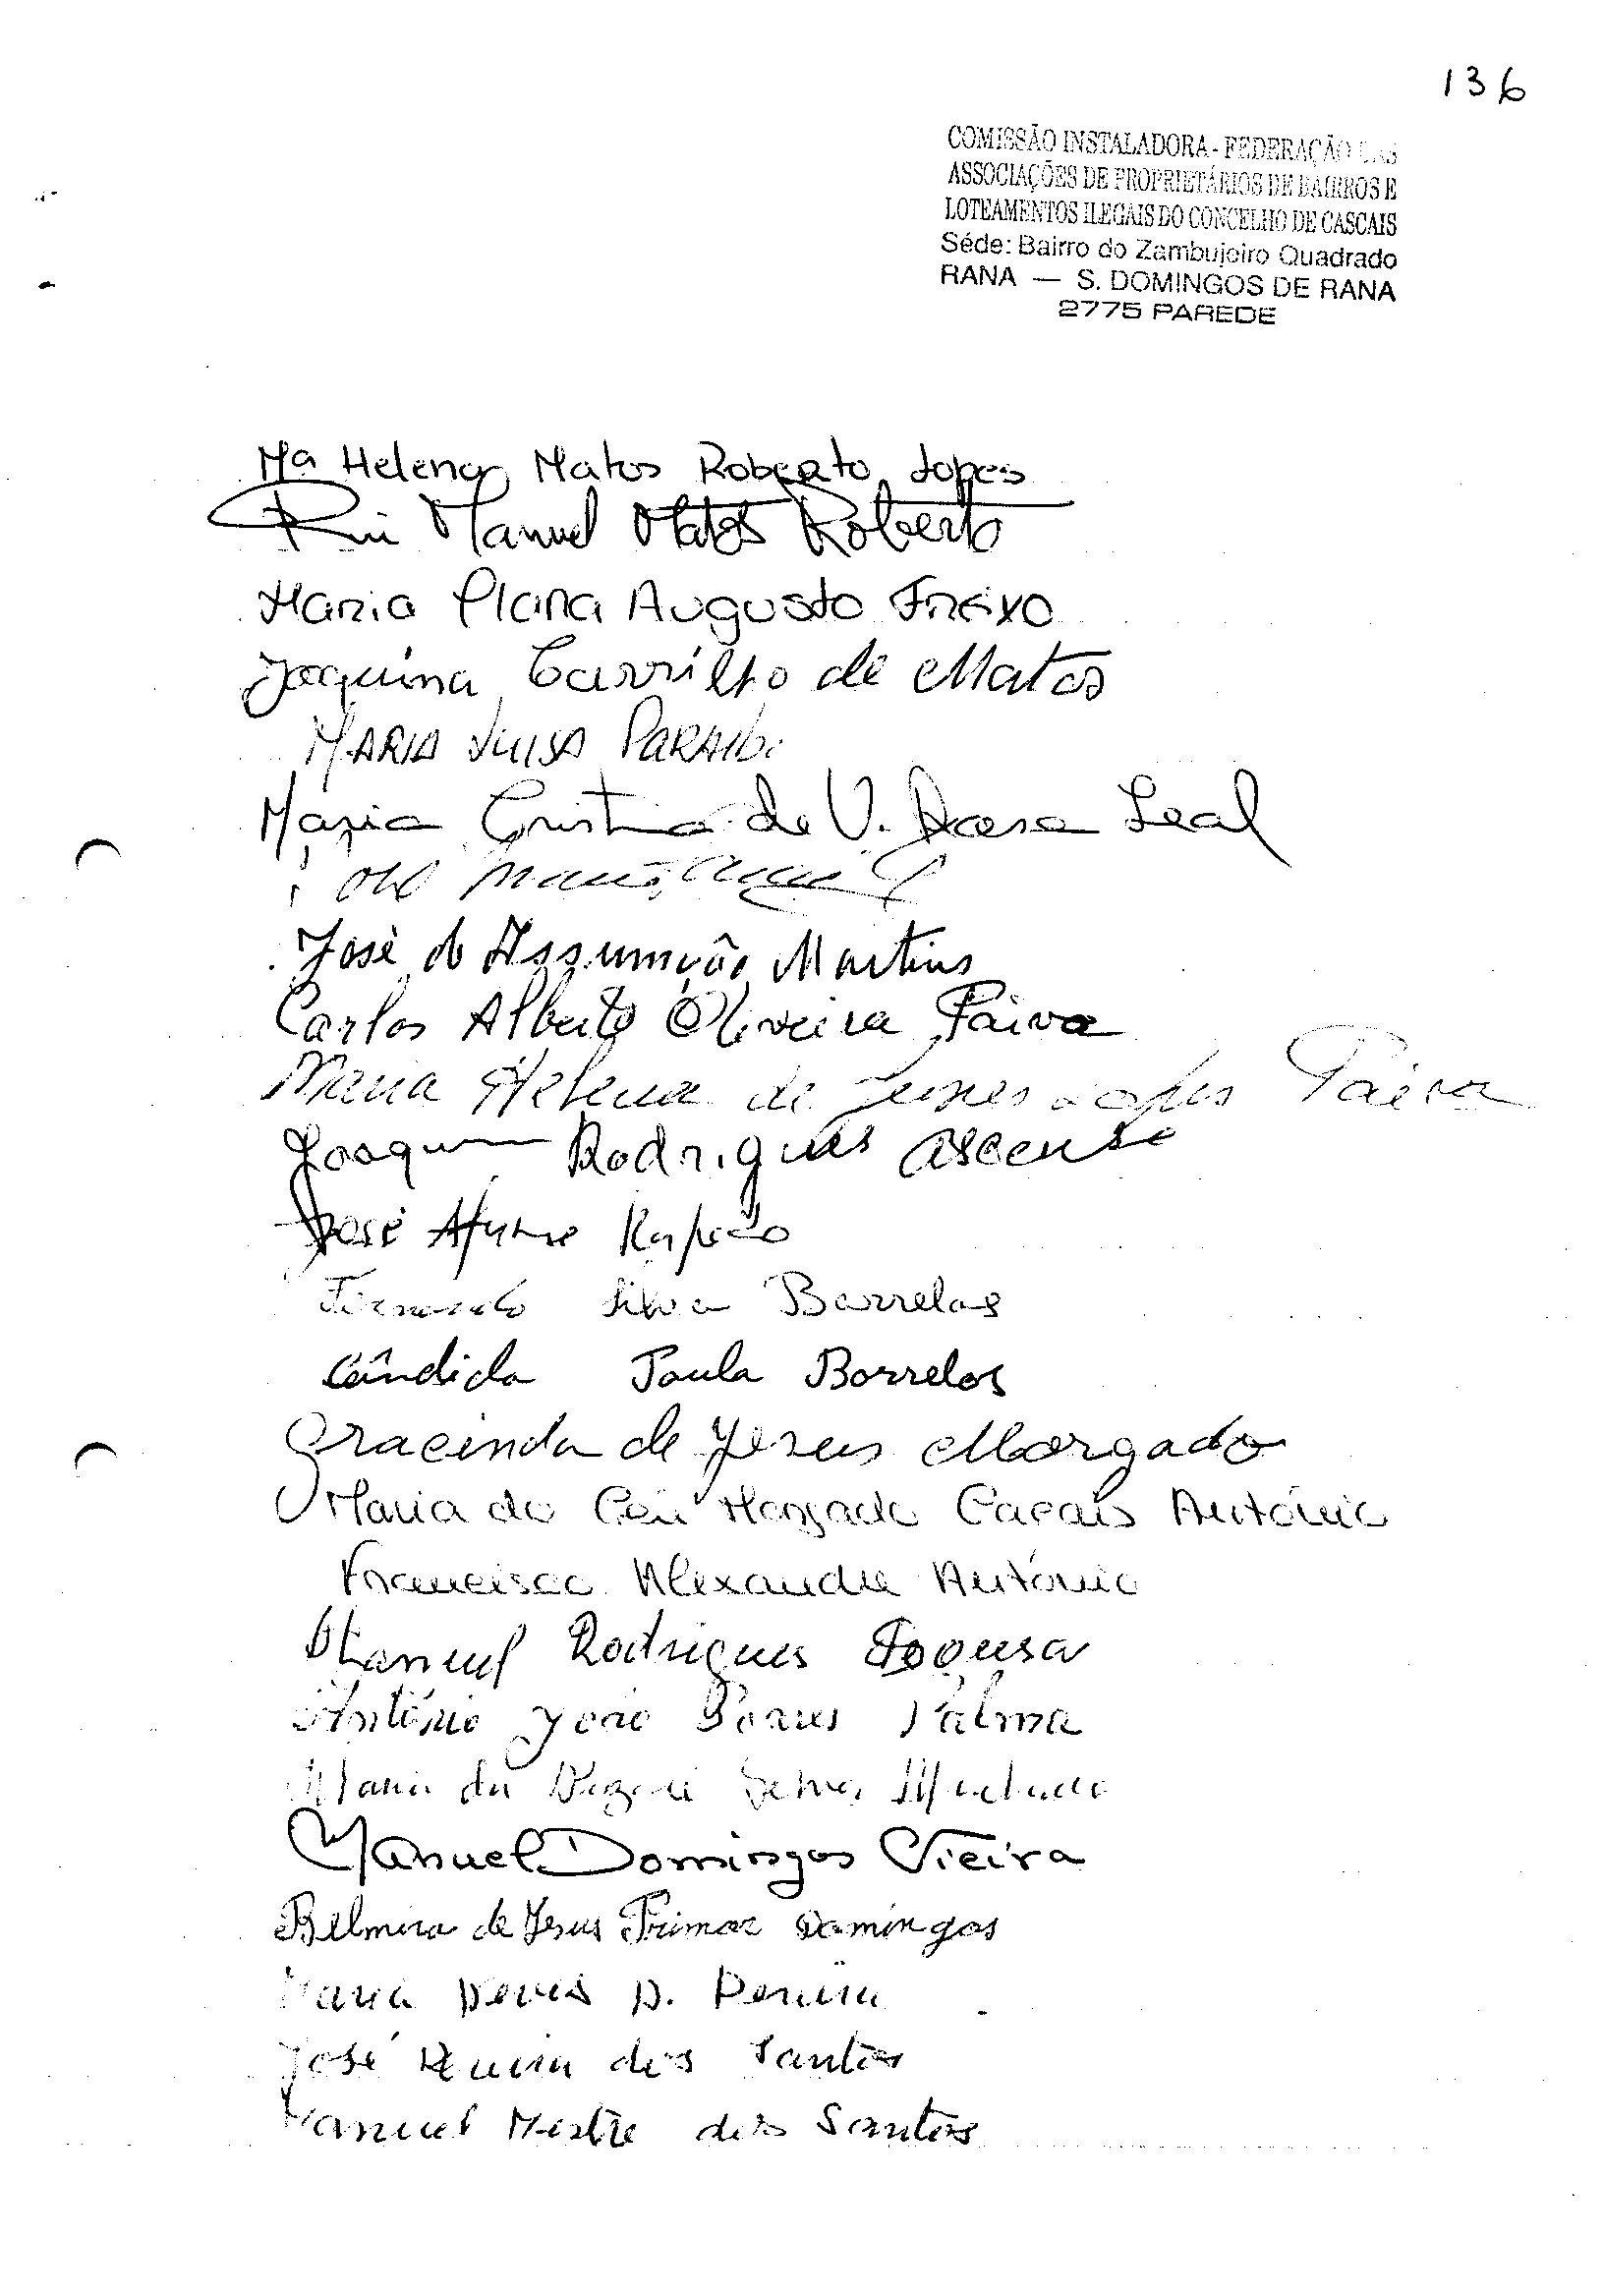 136
COMISSÃO INSTALADORA - FEDERAÇÃO DAS
ASSOCIAÇÕES DE PROPRIETÁRIOS DE BAIRROS E
LOTEAMENTOS ILEGAIS DO CONCELHO DE CASCAIS
Séde: Bairro do Zambujeiro Quadrado
RANA — S. DOMINGOS DE RANA
2775 PAREDE
Mª Helena Matos Roberto Lopes
Rui Manuel Matos Roberto
Maria Clara Augusto Freixo
Joaquina Carrilho de Matos
MARIA LUISA
Maria Cristina de V. Leal
José de Assumção Martins
Carlos Alberto Oliveira Paiva
Maria Helena de Lemes Lopes Paiva
Joaquim Rodrigues Ascenso
José
Fernando Silva Barrelas
Cândida Paula Barrelas
Gracinda de Jesus Morgado
Maria do Céu Morgado António
Francisco Alexandre António
Manuel Rodrigues Sousa
António João Palma
Maria da Silva
Manuel Domingos Vieira
Belmira de Jesus Domingos
Maria D.
José dos Santos
Manuel Mestre dos Santos